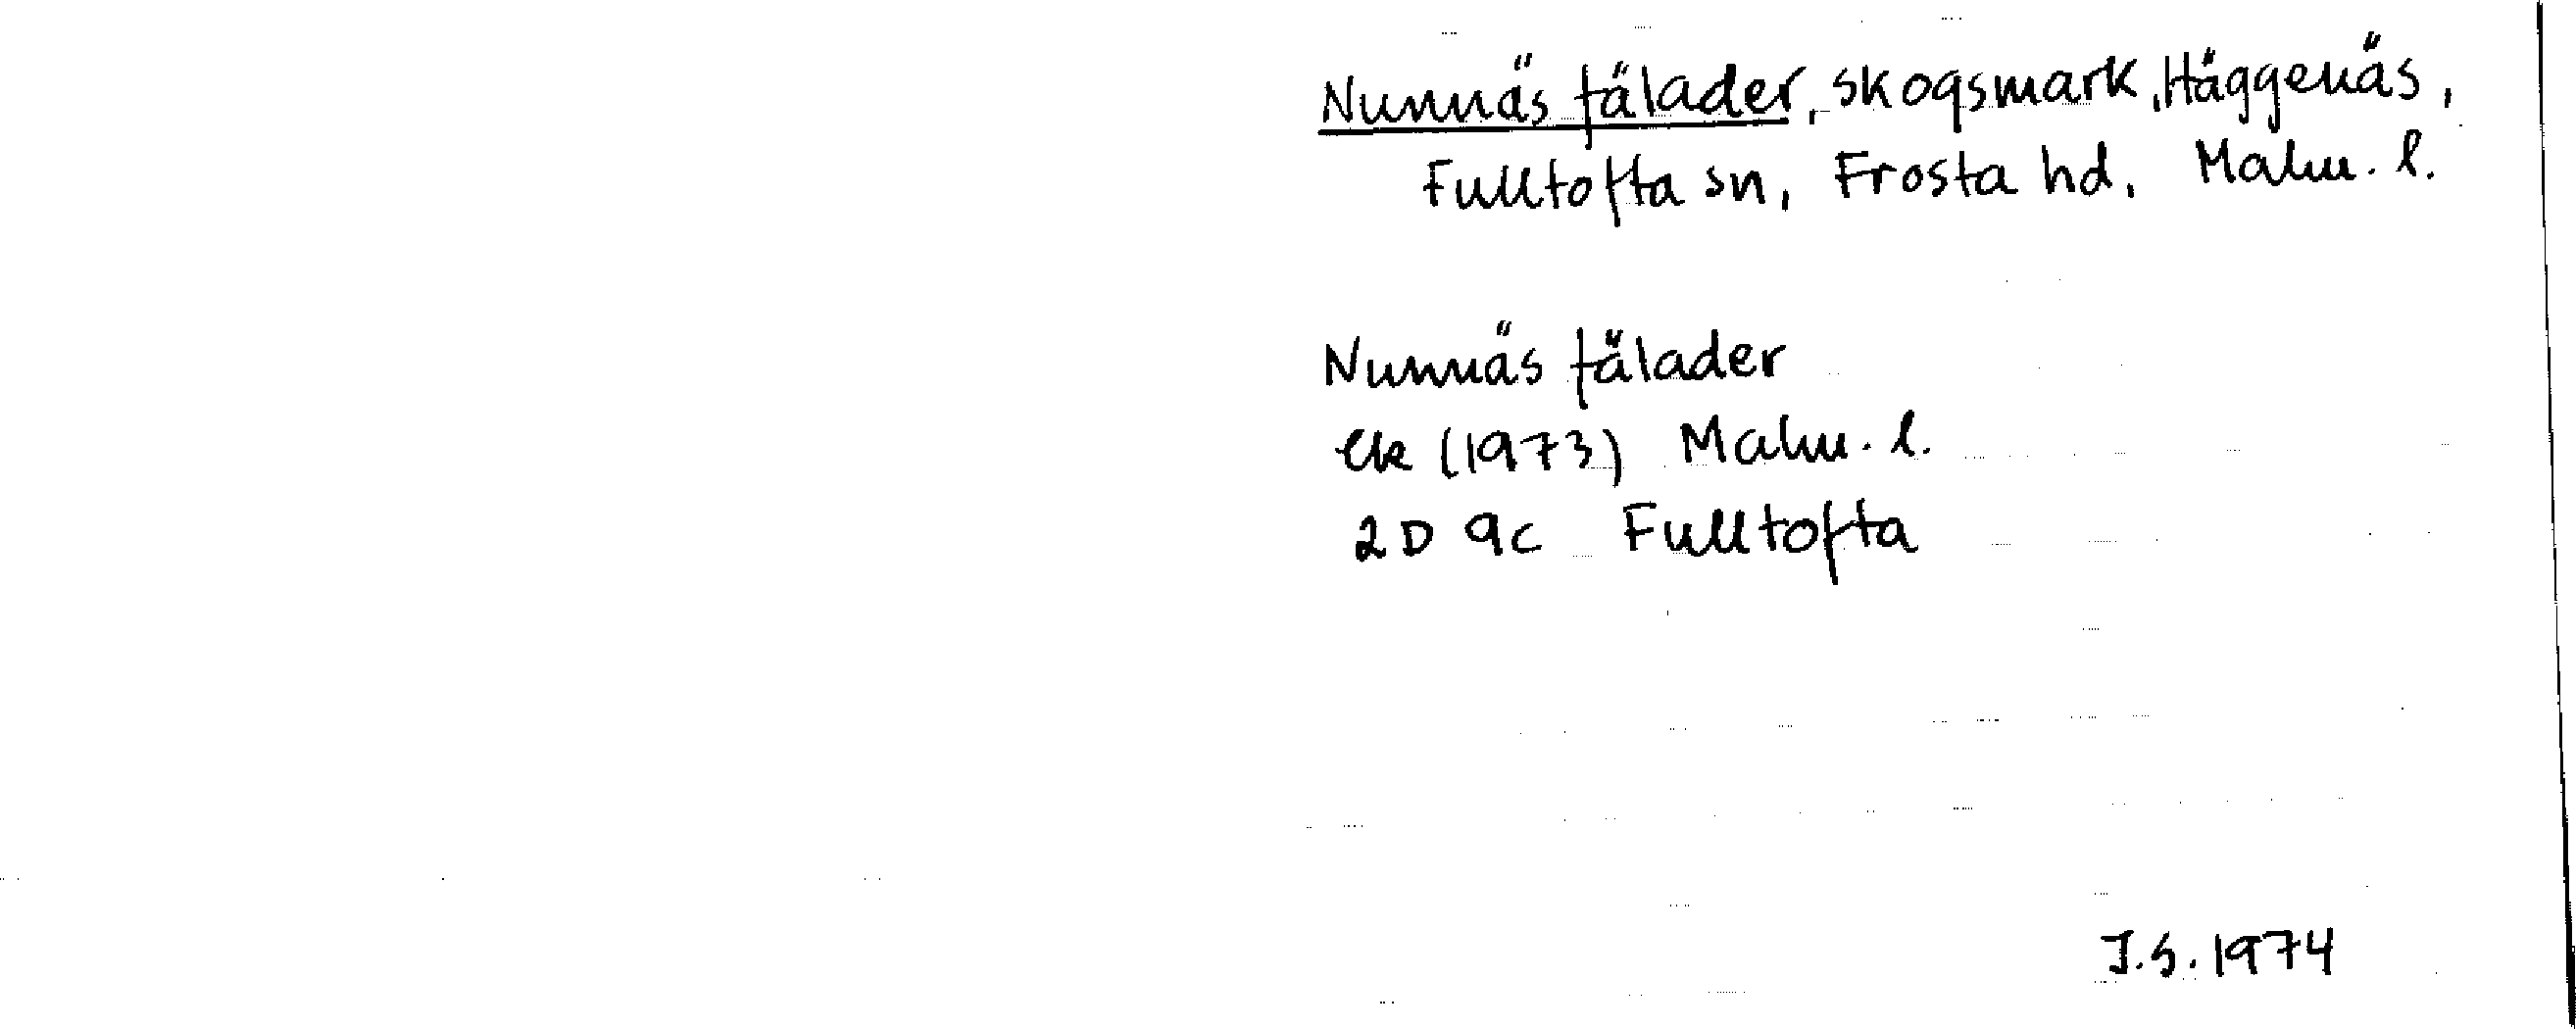 Nunnäs fälader, skogsmark, Häggenäs,
Fulltofta sn, Frosta hd, Malm. l.
Nunnäs fälader
ek (1973) Malm. l.
2D 9c Fulltofta
J.S. 1974